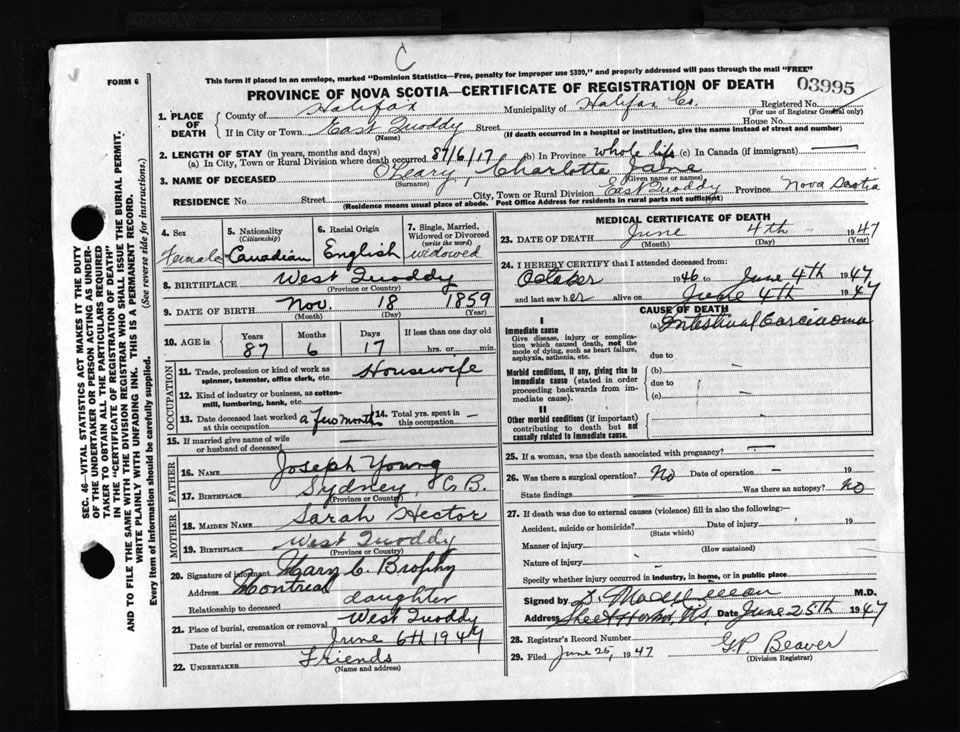 C
FORM 6
This form if placed in an envelope, marked "Dominion Statistics—Free, penalty for improper use $300," and properly addressed will pass through the mail "FREE"
PROVINCE OF NOVA SCOTIA—CERTIFICATE OF REGISTRATION OF DEATH
03995
SEC. 46—VITAL STATISTICS ACT MAKES IT THE DUTY
OF THE UNDERTAKER OR PERSON ACTING AS UNDER-
TAKER TO OBTAIN ALL THE PARTICULARS REQUIRED
IN THE "CERTIFICATE OF REGISTRATION OF DEATH"
AND TO FILE THE SAME WITH THE DIVISION REGISTRAR WHO SHALL ISSUE THE BURIAL PERMIT.
WRITE PLAINLY WITH UNFADING INK. THIS IS A PERMANENT RECORD.
Every item of information should be carefully supplied. (See reverse side for instructions.)
1. PLACE OF DEATH
County of Halifax Municipality of Halifax Co. Registered No.
(For use of Registrar General only)
If in City or Town East Quoddy Street House No.
(Name) (If death occurred in a hospital or institution, give the name instead of street and number)
2. LENGTH OF STAY (in years, months and days)
(a) In City, Town or Rural Division where death occurred 87/6/17 (b) In Province whole life (c) In Canada (if immigrant) —
3. NAME OF DECEASED O'Leary, Charlotte Jane
(Surname) (Given name or names)
RESIDENCE No. Street City, Town or Rural Division East Quoddy Province Nova Scotia
(Residence means usual place of abode. Post Office Address for residents in rural parts not sufficient)
4. Sex
Female
5. Nationality
(Citizenship)
Canadian
6. Racial Origin
English
7. Single, Married,
Widowed or Divorced
(write the word)
widowed
8. BIRTHPLACE West Quoddy
(Province or Country)
9. DATE OF BIRTH Nov. 18 1859
(Month) (Day) (Year)
10. AGE in Years Months Days If less than one day old
87 6 17 hrs. or min.
OCCUPATION
11. Trade, profession or kind of work as
spinner, teamster, office clerk, etc. Housewife
12. Kind of industry or business, as cotton-
mill, lumbering, bank, etc.
13. Date deceased last worked
at this occupation a few months
14. Total yrs. spent in
this occupation —
15. If married give name of wife
or husband of deceased —
FATHER
16. Name Joseph Young
17. Birthplace Sydney, C.B.
(Province or Country)
MOTHER
18. MAIDEN NAME Sarah Hector
19. BIRTHPLACE West Quoddy
(Province or Country)
20. Signature of informant Mary C. Brophy
Address Montreal
Relationship to deceased daughter
21. Place of burial, cremation or removal West Quoddy
Date of burial or removal June 6th 1947
22. UNDERTAKER Friends
(Name and address)
MEDICAL CERTIFICATE OF DEATH
23. DATE OF DEATH June 4th 1947
(Month) (Day) (Year)
24. I HEREBY CERTIFY that I attended deceased from:
October 1946 to June 4th 1947
and last saw her alive on June 4th 1947
CAUSE OF DEATH
I
Immediate cause
Give disease, injury or complica-
tion which caused death, not the
mode of dying, such as heart failure,
asphyxia, asthenia, etc.
(a) Intestinal Carcinoma
due to
Morbid conditions, if any, giving rise to
immediate cause (stated in order
proceeding backwards from im-
mediate cause).
(b) —
due to
(c) —
II
Other morbid conditions (if important)
contributing to death but not
causally related to immediate cause.
25. If a woman, was the death associated with pregnancy? —
26. Was there a surgical operation? No Date of operation — 19
State findings Was there an autopsy? No
27. If death was due to external causes (violence) fill in also the following:—
Accident, suicide or homicide? Date of injury 19
(State which)
Manner of injury
(How sustained)
Nature of injury
Specify whether injury occurred in industry, in home, or in public place
Signed by M.D.
Address Sheet Harbor, N.S. Date June 25th 1947
28. Registrar's Record Number
29. Filed June 25, 1947 G.P. Beaver
(Division Registrar)